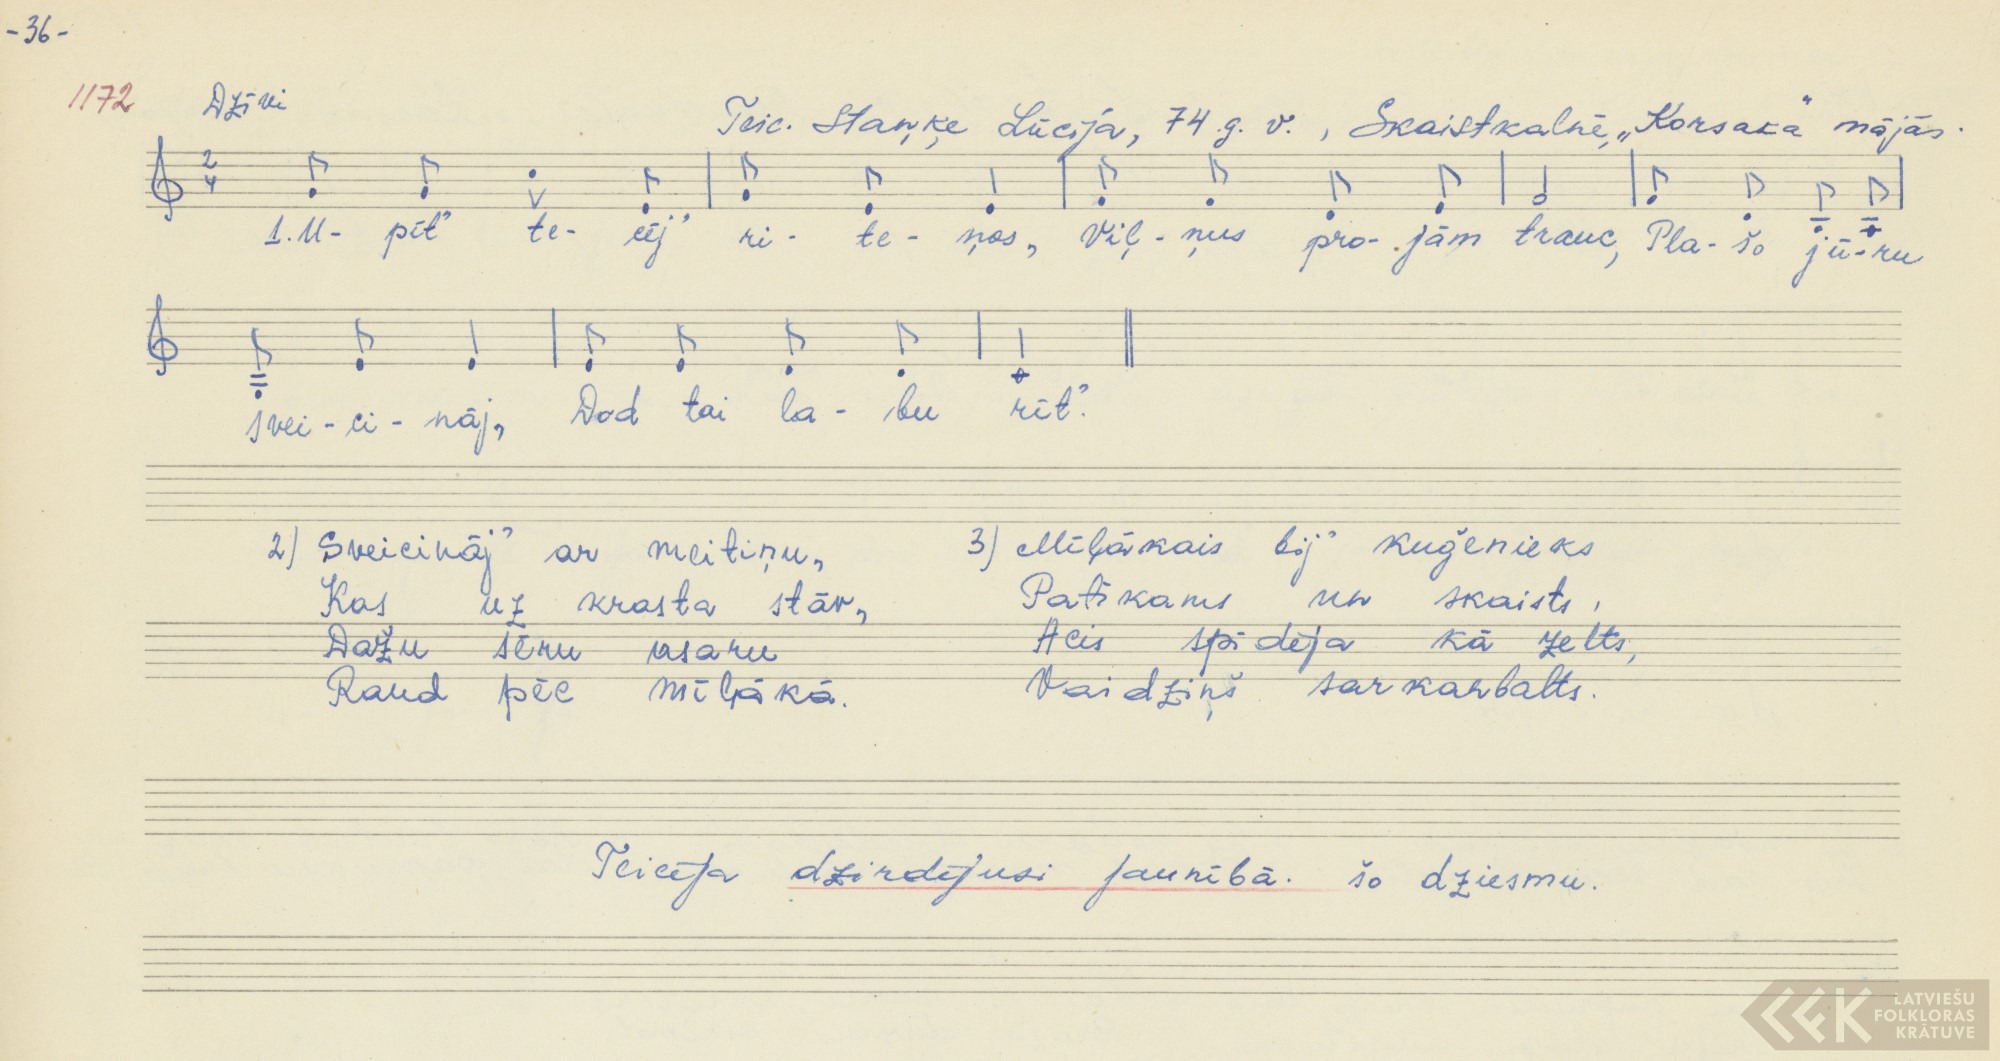 -36-
1172 Dzīvi
Teic. Staņķe Lūcija, 74 g. v., Skaistkalnē, „Korsaka" mājās.
2/4
1. U- pīt' te- cēj' ri- te- ņos, Viļ- ņus pro- jām trauc, Pla- šo jū- ru
svei- ci- nāj, Dod tai la- bu rīt'.
2) Sveicināj' ar meitiņu,
Kas uz krasta stāv,
Dažu sēru asaru
Raud pēc mīļākā.
3) Mīļākais bij' kuģenieks
Patīkams un skaists,
Acis spīdēja kā zelts,
Vaidziņš sarkanbalts.
Teicēja dzirdējusi jaunībā. šo dziesmu.
LATVIEŠU
FOLKLORAS
KRĀTUVE